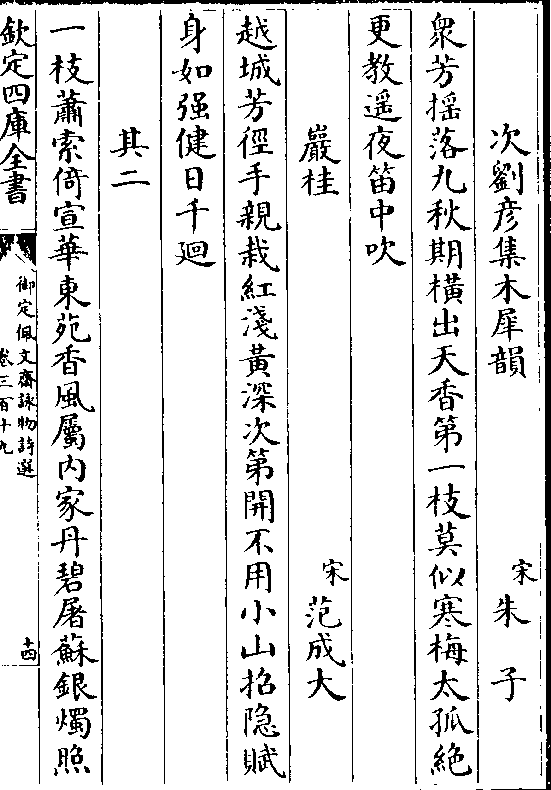 次劉彦集木犀韻 宋 朱子
衆芳揺落九秋期橫出天香第一枝莫似寒梅太孤絶
更教遥夜笛中吹
巖桂 宋 范成大
越城芳徑手親栽紅淺黃深次第開不用小山招隐賦
身如强健日千廻
其二
一枝蕭索倚宣華東苑香風屬内家丹碧屠蘇銀燭照
欽定四庫全書
御定佩文齋詠物詩選
卷三百十九
十四